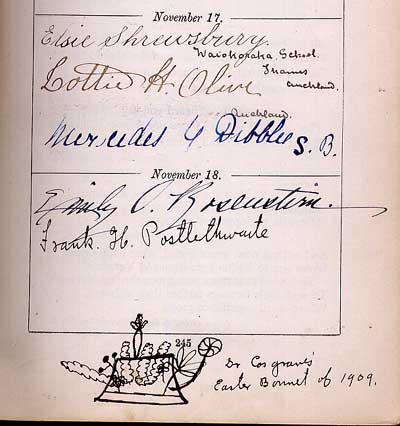 November 17.
Elsie Shrewsbury.
Waiokaraka School.
Thames
Auckland.
Lottie H. Olive
Auckland.
Mercedes G Dibblee S. B.
November 18.
Emily O. Rosenstirn.
Frank. H. Postlethwaite
245
Dr Cosgrave's
Easter Bonnet of 1909.